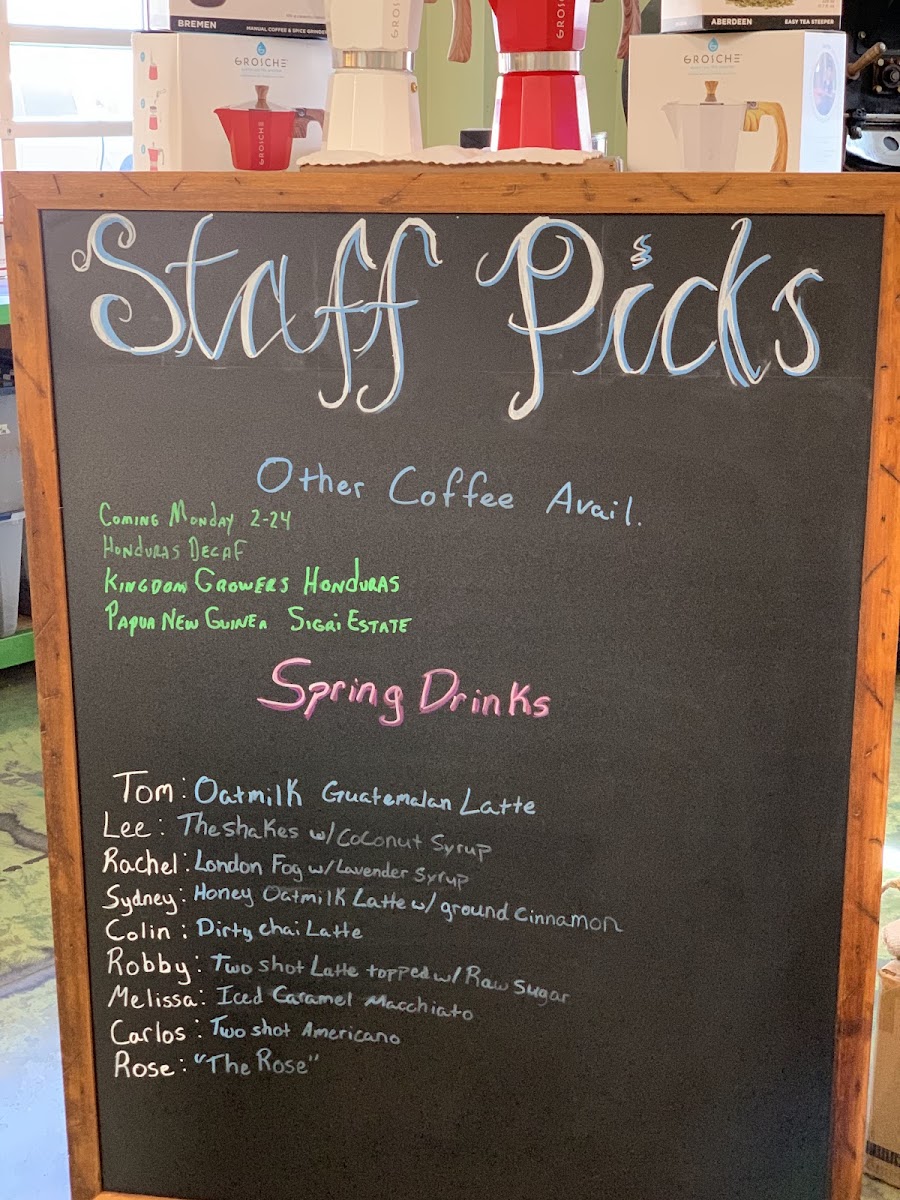 BREMEN
MANUAL COFFEE & SPICE GRINDER
ABERDEEN
EASY TEA STEEPER
GROSCHE
GROSCHE
GROSCHE
GROSCHE
GROSCHE
Staff Picks
Other Coffee Avail.
Coming Monday 2-24
Honduras Decaf
Kingdom Growers Honduras
Papua New Guinea Sigri Estate
Spring Drinks
Tom: Oatmilk Guatemalan Latte
Lee: The shakes w/ Coconut Syrup
Rachel: London Fog w/ Lavender Syrup
Sydney: Honey Oatmilk Latte w/ ground Cinnamon
Colin: Dirty chai Latte
Robby: Two shot Latte topped w/ Raw Sugar
Melissa: Iced Caramel Macchiato
Carlos: Two shot Americano
Rose: "The Rose"